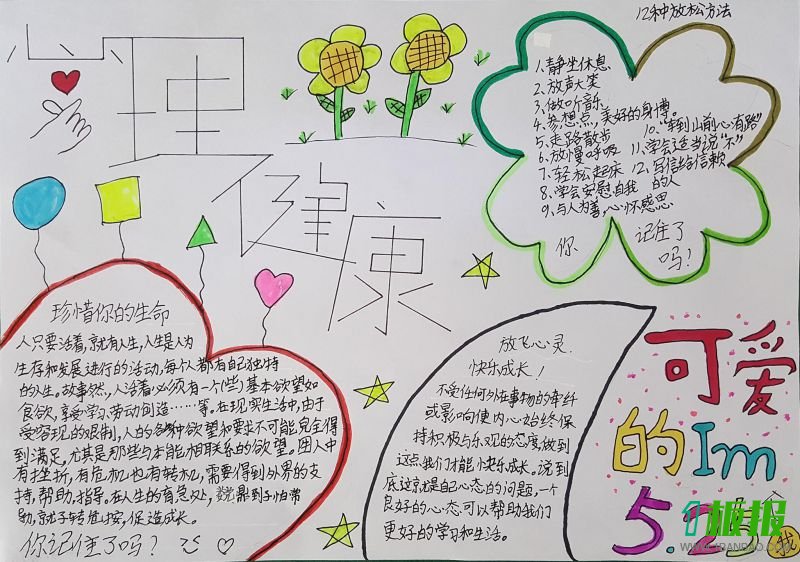 心理
健康
12种放松方法
1、静坐休息
2、放声大笑
3、做听音乐
4、参想点,美好的身博。
5、走路散步
6、放慢呼吸
7、轻松起床
8、学会安慰自我
9、与人为善,心怀感恩
10、"车到山前心有路"
11、学会适当说"不"
12、写信给信赖
的人
你 记住了
吗?
珍惜你的生命
人只要活着,就有人生,人生是人为
生存和发展进行的活动,每个人都有自己独特
的人生。故事然,人活着必须有一个(些)基本欲望如
食欲,享受学习,劳动创造……等。在现实生活中,由于
受客现的限制,人的各种欲望和要求不可能完全得
到满足,尤其是那些与本能相联系的欲望。困人中
有挫折,有危机也有转机,需要得到外界的支
持,帮助,指导。在人生的
就子转危
促造成长。
你记住了吗?
放飞心灵
快乐成长!
不受任何外在事物的牵纤
或影响使内心始终保
持积极与乐观的态度,做到
这点我们才能快乐成长。说到
底这就是自己心态的问题,一个
良好的心态可以帮助我们
更好的学习和生活。
可爱
的Im
5.25
我
板报